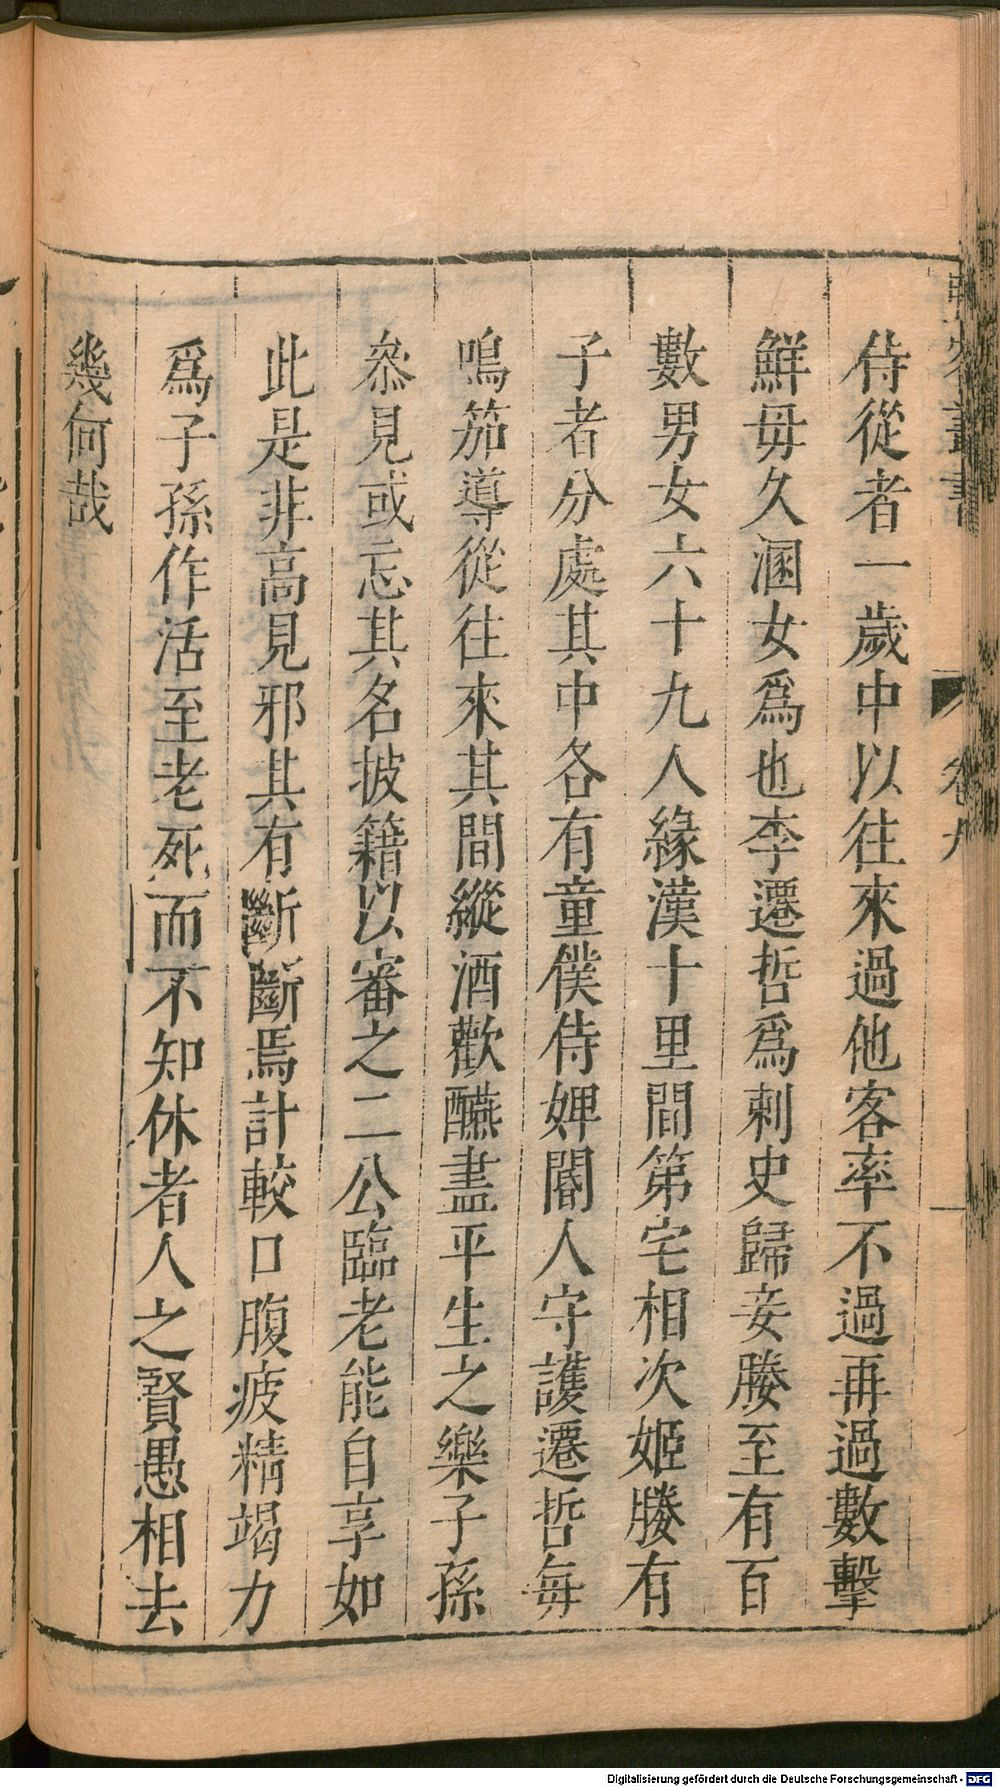 侍從者一歲中以往來過他客率不過再過數擊
鮮毋久溷女爲也李遷哲爲刺史歸妾媵至有百
數男女六十九人緣漢十里間第宅相次姬媵有
子者分處其中各有童僕侍婢閽人守護遷哲每
鳴笳導從往來其間縱酒歡醼盡平生之樂子孫
叅見或忘其名披籍以審之二公臨老能自享如
此是非高見邪其有斷斷焉計較口腹疲精竭力
爲子孫作活至老死而不知休者人之賢愚相去
幾何哉
卷九
Digitalisierung gefördert durch die Deutsche Forschungsgemeinschaft - DFG